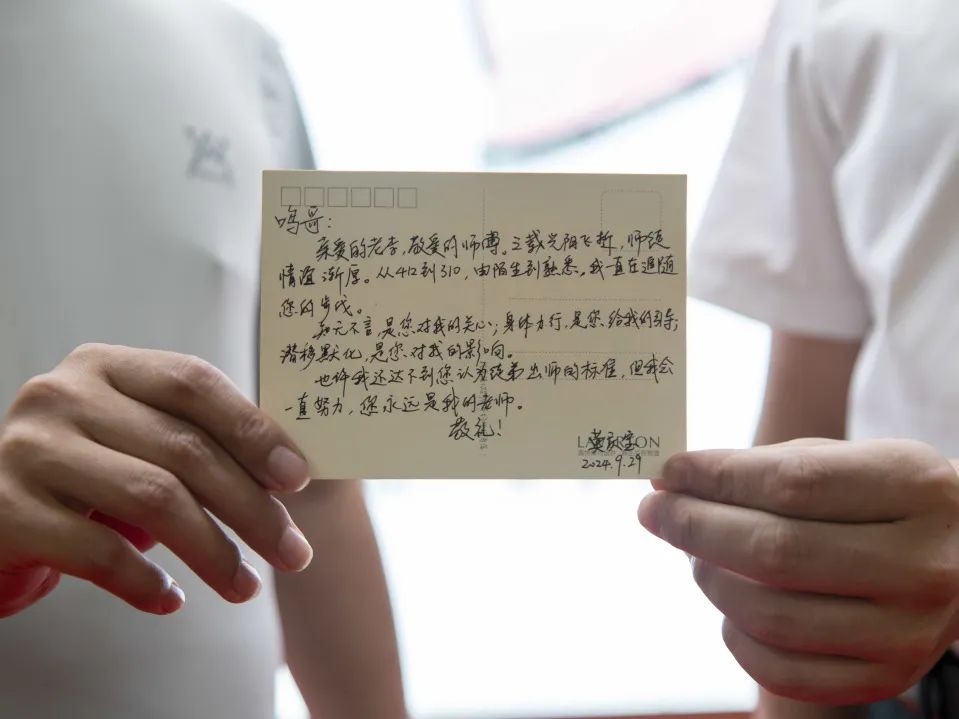 鸣哥:
亲爱的老李,敬爱的师傅。三载光阴飞逝,师徒
情谊渐厚。从412到310,由陌生到熟悉,我一直在追随
您的步伐。
知无不言,是您对我的关心;身体力行,是您给我的引导;
潜移默化,是您对我的影响。
也许我还达不到您认为徒弟出师的标准,但我会
一直努力,您永远是我的老师。
敬礼!
2024.9.29